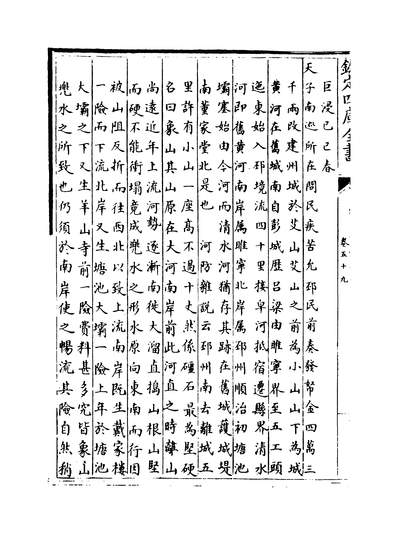 欽定四庫全書
卷五十九
巨浸已巳春
天子南巡所在問民疾苦允邳民前奏發帑金四萬三
千兩改建州城於艾山艾山之前為小山山下為城
黃河在舊城南自彭城歷呂梁由睢寧界至五工頭
迤東始入邳境流四十里接皁河抵宿遷縣界清水
河即舊黃河南岸屬睢寧北岸屬邳州順治初塘池
壩塞始由今河而清水河猶存其跡在舊城茂城堤
南董家堂北是也　河防雜說云邳州南去離城五
里許有小山一座高不過十丈然係礓石最為堅硬
名曰象山其山原在大河南岸前此河直之時離山
尚遠近年上流河勢逐漸南徙大溜直搗山根山堅
而硬不能衝塌竟成兠水之形水原向東南而行因
被山阻反折而往西北以致上流南岸既生戴家樓
一險而下流北岸又生塘池大壩一險上年於塘池
大壩之下又生羊山寺前一險費料甚多究皆象山
兠水之所致也仍須於南岸使之暢流其險自然稍